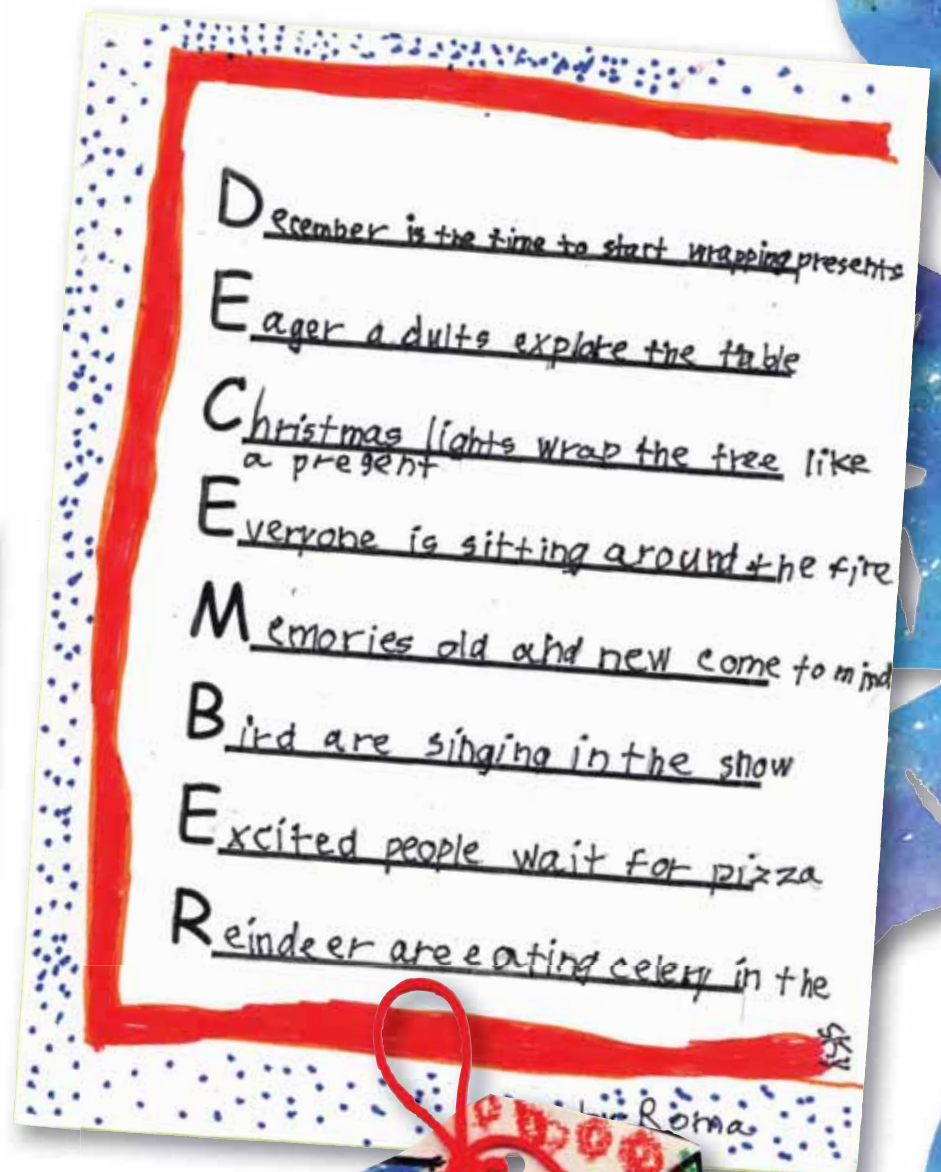 December is the time to start wrapping presents
Eager adults explore the table
Christmas lights wrap the tree like
a present
Everyone is sitting around the fire
Memories old and new come to mind
Bird are singing in the snow
Excited people wait for pizza
Reindeer are eating celery in the
sky
by Roma